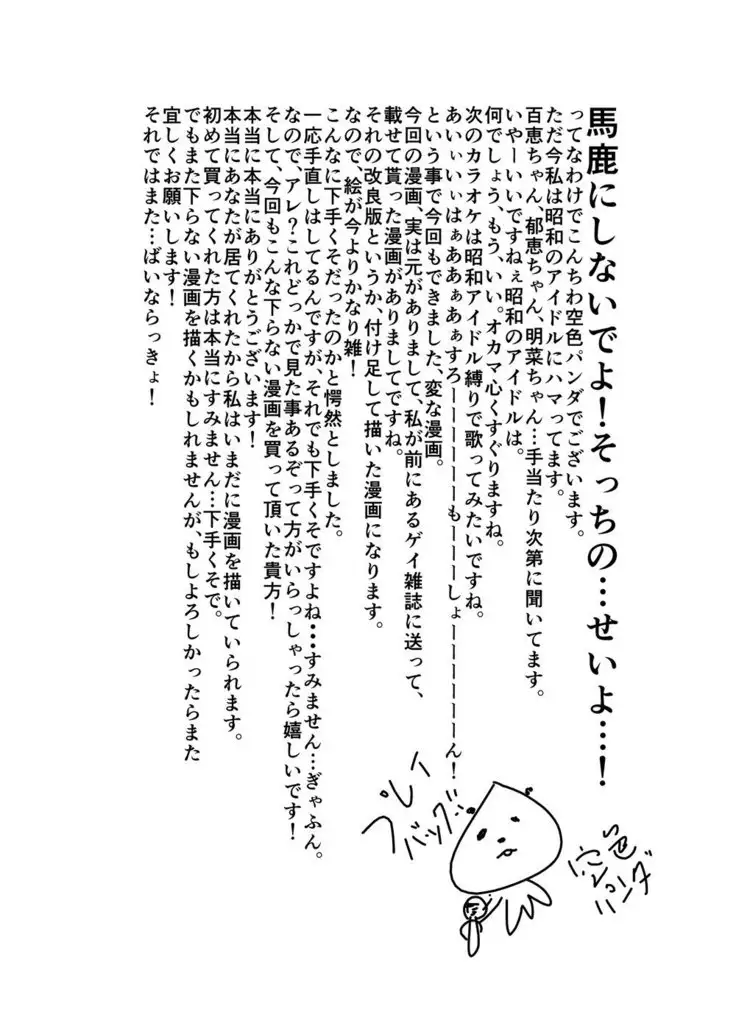 馬鹿にしないでよ！そっちの…せいよ…！
ってなわけでこんちわ空色パンダでございます。
ただ今私は昭和のアイドルにハマってます。
百恵ちゃん、郁恵ちゃん、明菜ちゃん…手当たり次第に聞いてます。
いやーいいですねぇ昭和のアイドルは。
何でしょう、もう、いい。オカマ心くすぐりますね。
次のカラオケは昭和アイドル縛りで歌ってみたいですね。
あいぃぃぃはぁああぁあぁすろーーーーーーもーーーしょーーーーーーん！
という事で今回もできました、変な漫画。
今回の漫画、実は元がありまして、私が前にあるゲイ雑誌に送って、
載せて貰った漫画がありましてですね。
それの改良版というか、付け足して描いた漫画になります。
なので、絵が今よりかなり雑！
こんなに下手くそだったのかと愕然としました。
一応手直しはしてるんですが、それでも下手くそですよね・・・すみません…ぎゃふん。
なので、アレ？これどっかで見た事あるぞって方がいらっしゃったら嬉しいです！
そして、今回もこんな下らない漫画を買って頂いた貴方！
本当に本当にありがとうございます！
本当にあなたが居てくれたから私はいまだに漫画を描いていられます。
初めて買ってくれた方は本当にすみません…下手くそで。
でもまた下らない漫画を描くかもしれませんが、もしよろしかったらまた
宜しくお願いします！
それではまた…ばいならっきょ！
プレイ
バック!!
空色
パンダ